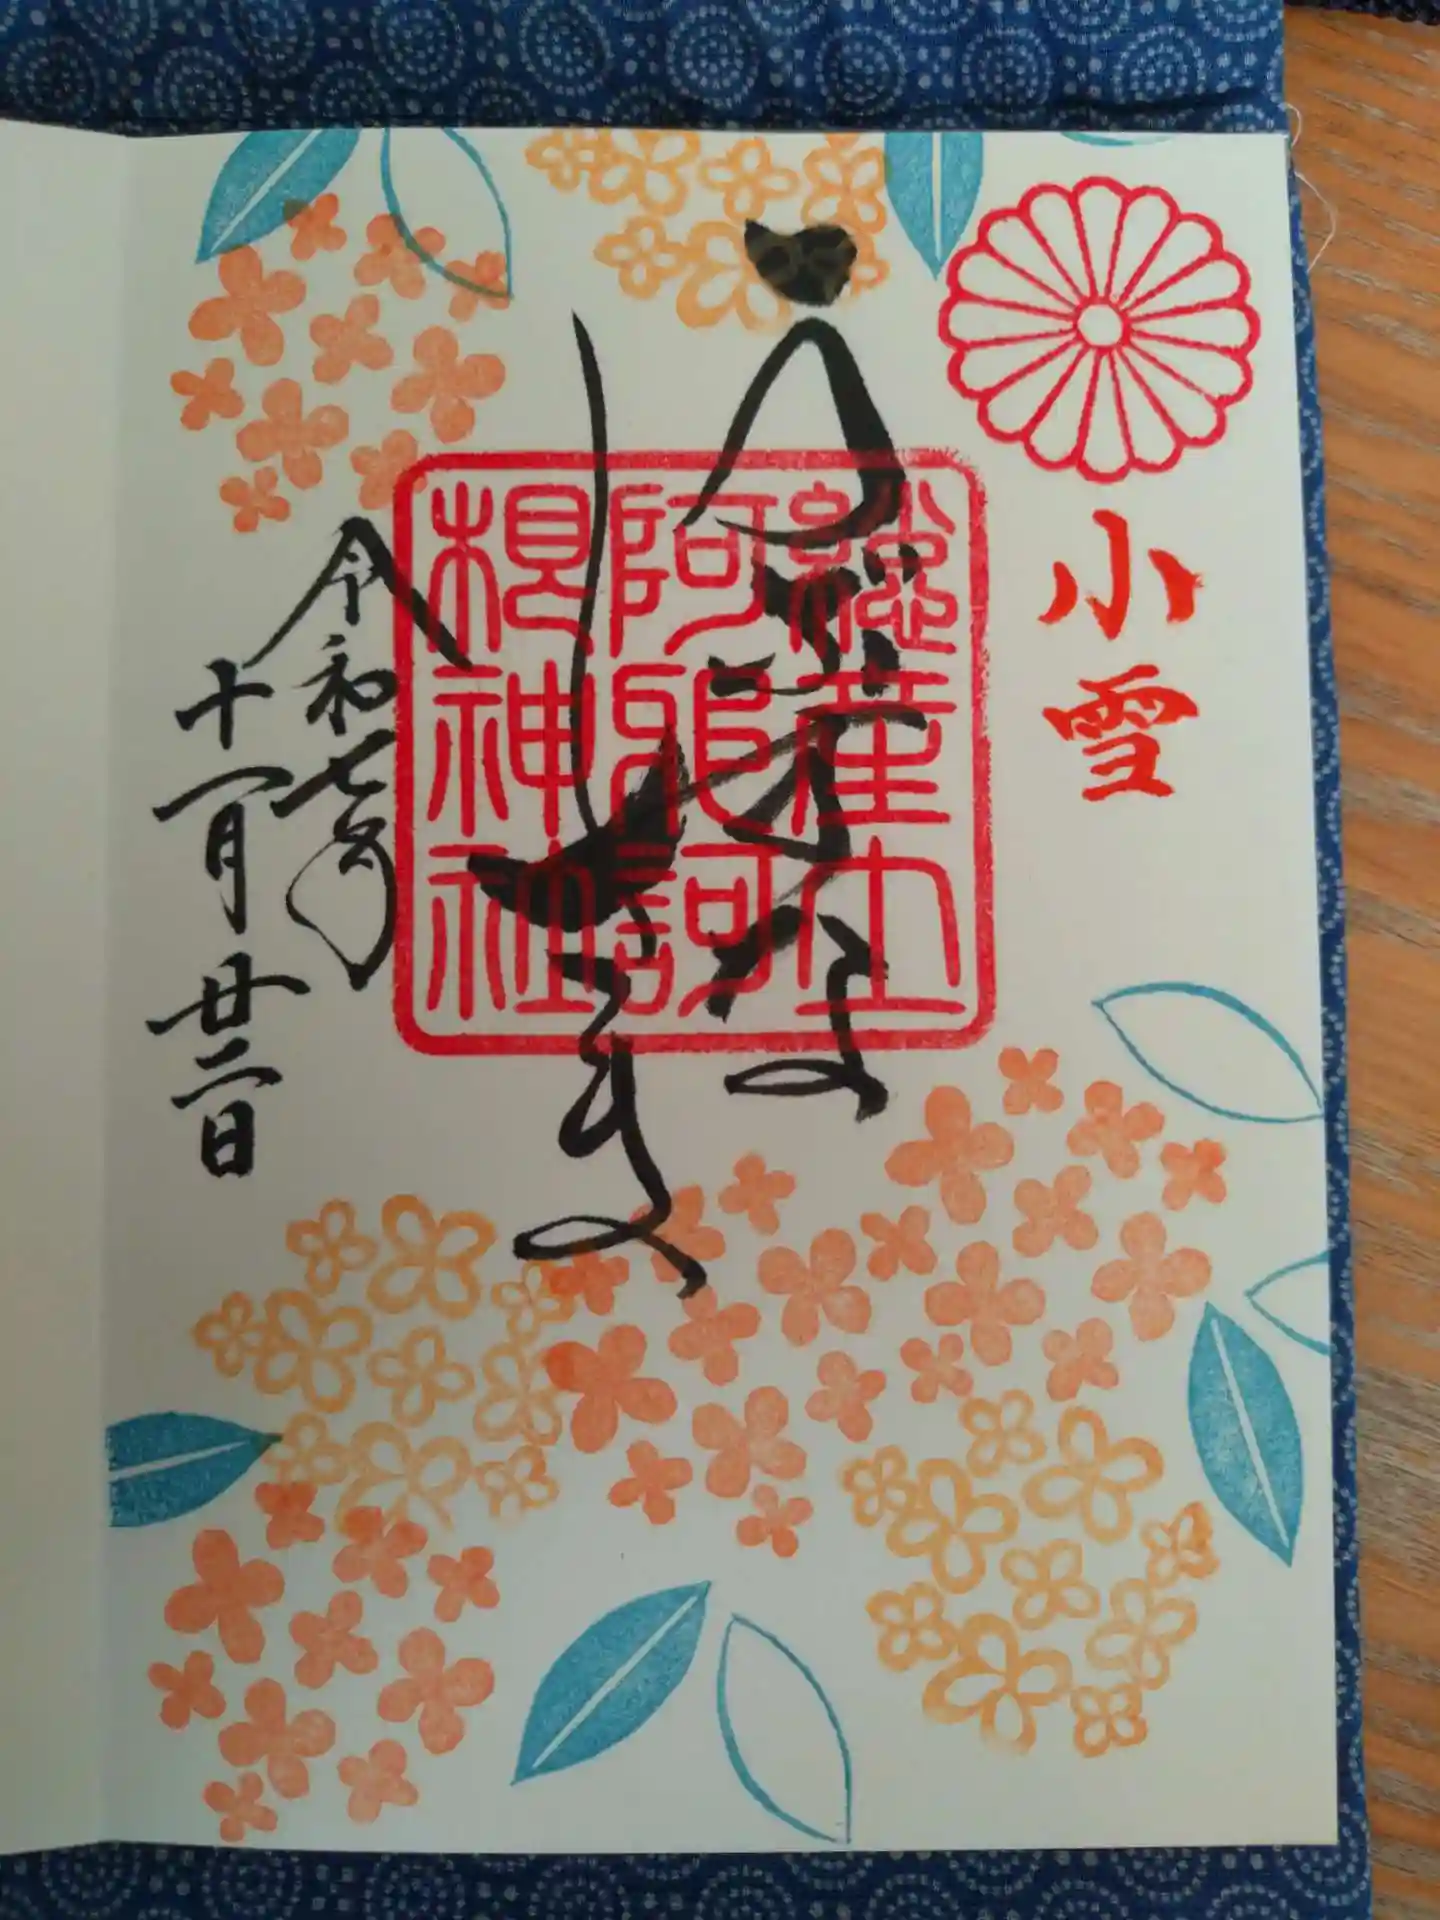 小雪
總産土
阿邪訶
根神社
令和七年
十一月廿二日